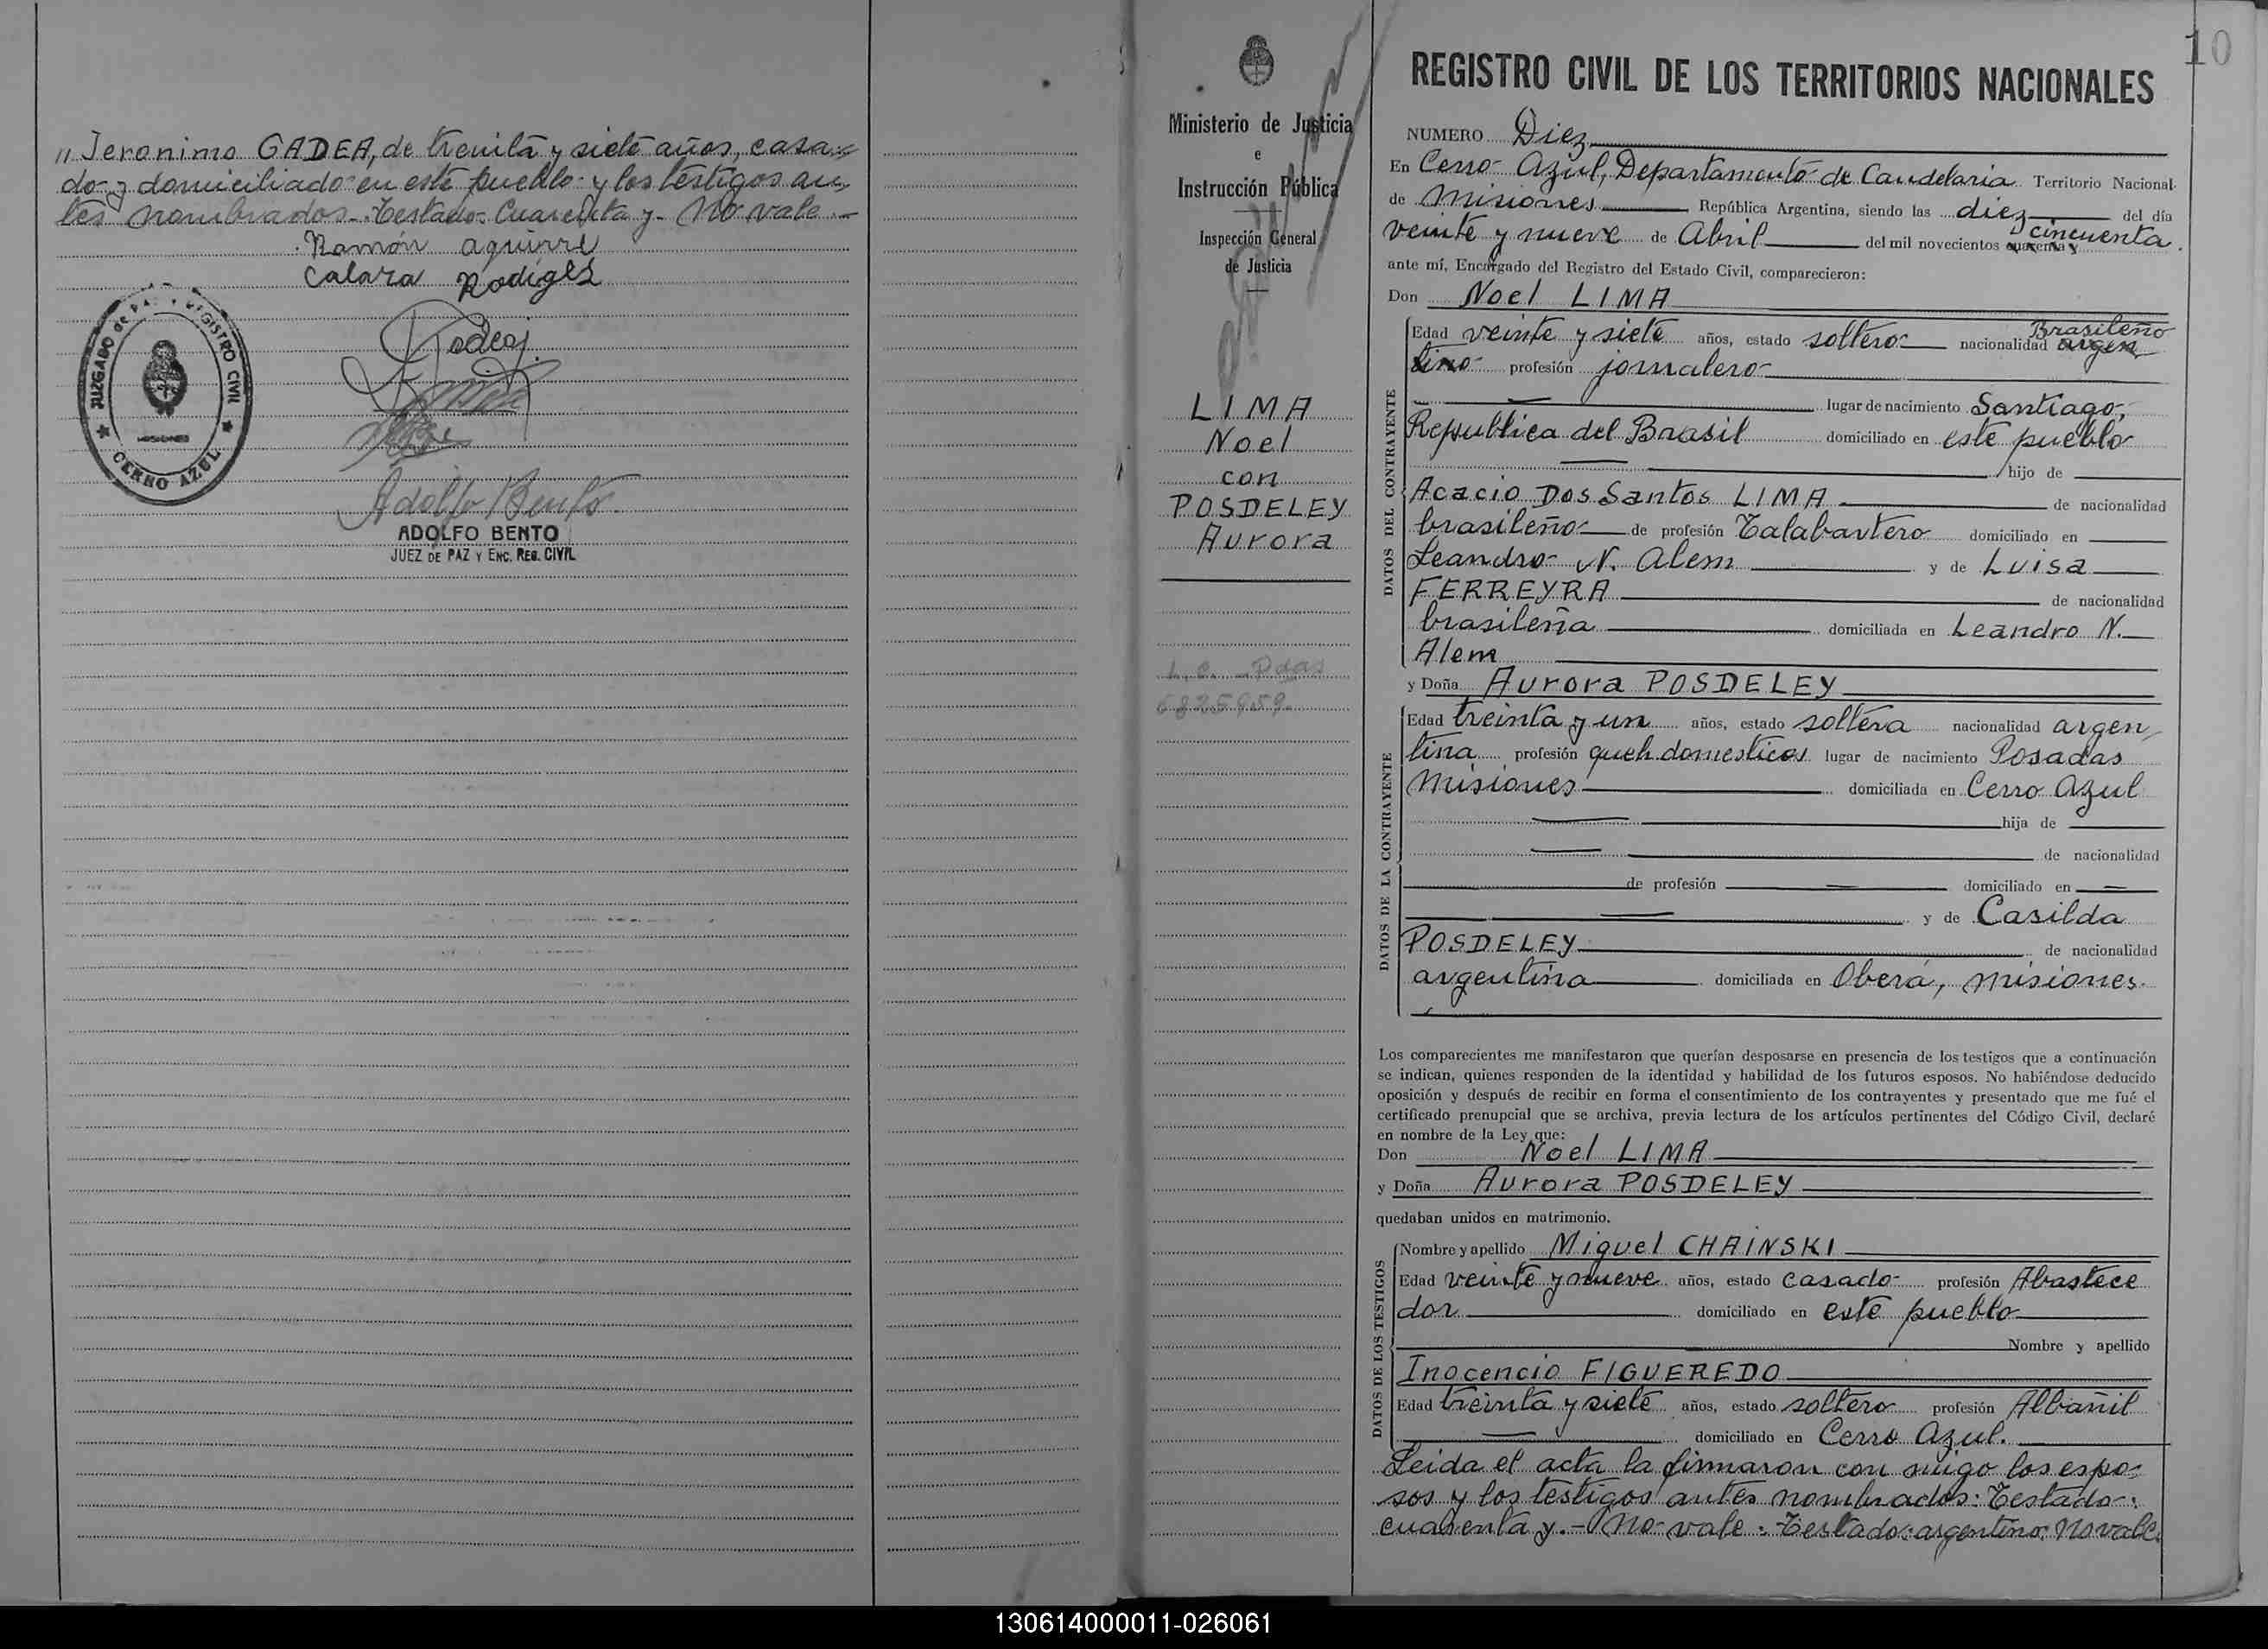 " Jeronimo GADEA, de treinta y siete años, casa-
do y domiciliado en este pueblo y los testigos an-
tes nombrados.- Testado: Cuarenta y.- No vale.-
Ramón aguirre
Calara Rodiges
JUZGADO de PAZ Y REGISTRO CIVIL
MISIONES
★ CERRO AZUL ★
Adolfo Bento
ADOLFO BENTO
JUEZ DE PAZ Y ENC. REG. CIVIL
Ministerio de Justicia
e
Instrucción Pública
Inspección General
de Justicia
LIMA
Noel
con
POSDELEY
Aurora
L.C.
10
REGISTRO CIVIL DE LOS TERRITORIOS NACIONALES
NUMERO Diez
En Cerro Azul, Departamento de Candelaria Territorio Nacional
de Misiones República Argentina, siendo las diez del día
veinte y nueve de Abril del mil novecientos cuarenta y cincuenta.
ante mí, Encargado del Registro del Estado Civil, comparecieron:
Don Noel LIMA
DATOS DEL CONTRAYENTE
Edad veinte y siete años, estado soltero nacionalidad Brasileño argen
tino profesión jornalero
lugar de nacimiento Santiago,
Republica del Brasil domiciliado en este pueblo
hijo de
Acacio Dos Santos LIMA de nacionalidad
brasileño de profesión Talabartero domiciliado en
Leandro N. Alem y de Luisa
FERREYRA de nacionalidad
brasileña domiciliada en Leandro N.
Alem
y Doña Aurora POSDELEY
DATOS DE LA CONTRAYENTE
Edad treinta y un años, estado soltera nacionalidad argen-
tina profesión queh. domesticos lugar de nacimiento Posadas
Misiones domiciliada en Cerro Azul
hija de
de nacionalidad
de profesión domiciliado en
y de Casilda
POSDELEY de nacionalidad
argentina domiciliada en Oberá, Misiones.
Los comparecientes me manifestaron que querían desposarse en presencia de los testigos que a continuación
se indican, quienes responden de la identidad y habilidad de los futuros esposos. No habiéndose deducido
oposición y después de recibir en forma el consentimiento de los contrayentes y presentado que me fué el
certificado prenupcial que se archiva, previa lectura de los artículos pertinentes del Código Civil, declaré
en nombre de la Ley que:
Don Noel LIMA
y Doña Aurora POSDELEY
quedaban unidos en matrimonio.
DATOS DE LOS TESTIGOS
Nombre y apellido Miguel CHAINSKI
Edad veinte y nueve años, estado casado profesión Abastece
dor domiciliado en este pueblo
Nombre y apellido
Inocencio FIGUEREDO
Edad treinta y siete años, estado soltero profesión Albañil
domiciliado en Cerro Azul.
Leida el acta la firmaron con migo los espo-
sos y los testigos antes nombrados: Testado:
cuarenta y.- No vale: Testado: argentino: No vale.
130614000011-026061